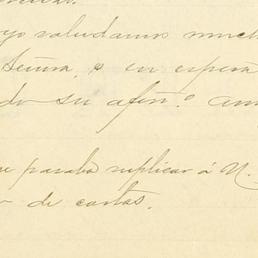 yo saludamos much
Señora, y en espera
do su afmo. am
paraba suplicar á V.
de cartas.